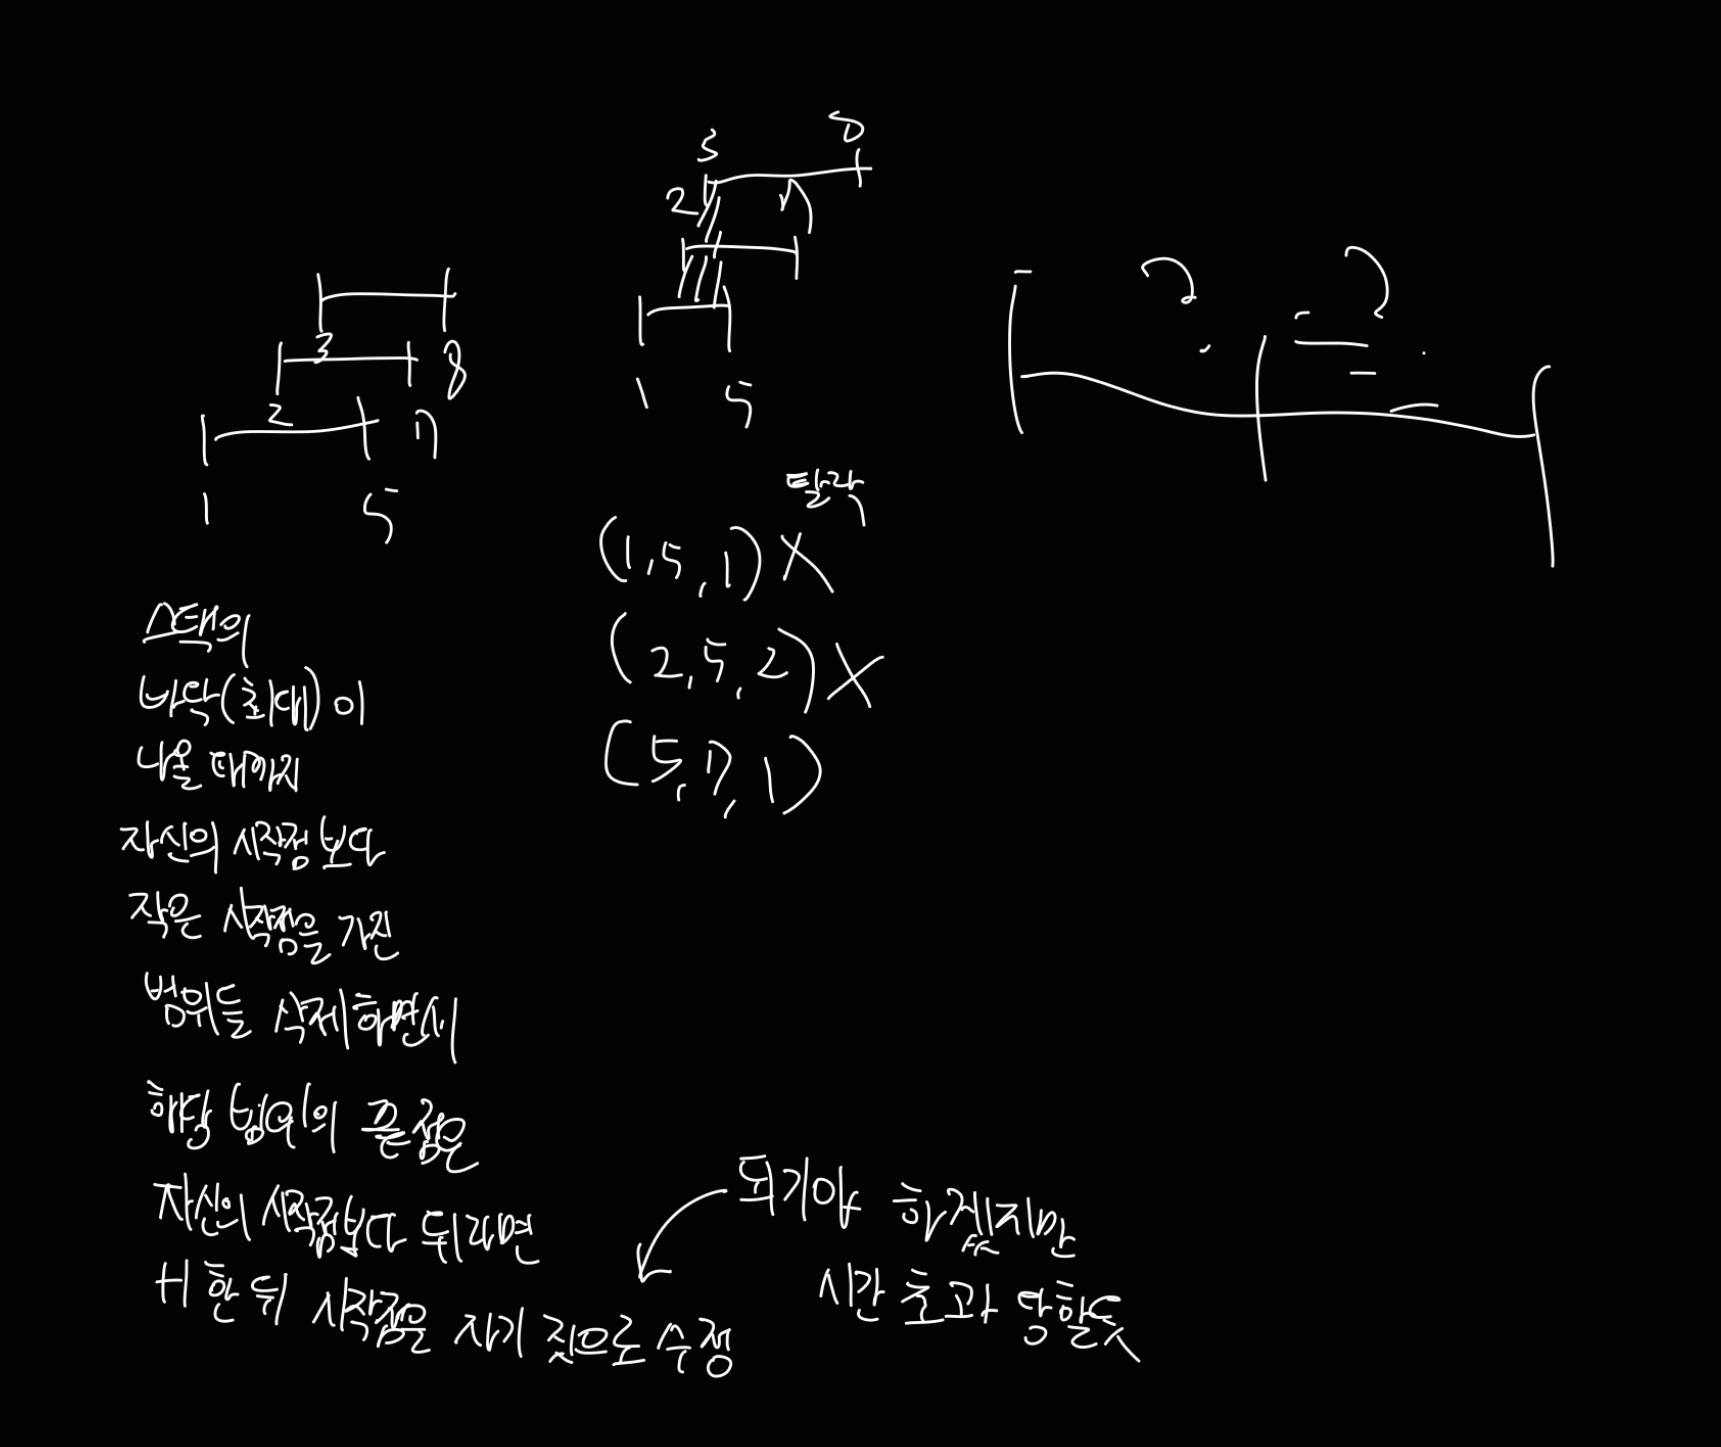 3
8
2
7
3
8
2
7
1
5
1
5
탈락
(1,5,1) X
(2,5,2) X
(5,7,1)
스택의
바닥(최대)이
나올 때까지
자신의 시작점 보다
작은 시작점을 가진
범위들 삭제하면서
해당 범위의 끝점은
자신의 시작점보다 뒤라면
+1 한 뒤 시작점을 자기 것으로 수정
되기야 하겠지만
시간 초과 당할듯